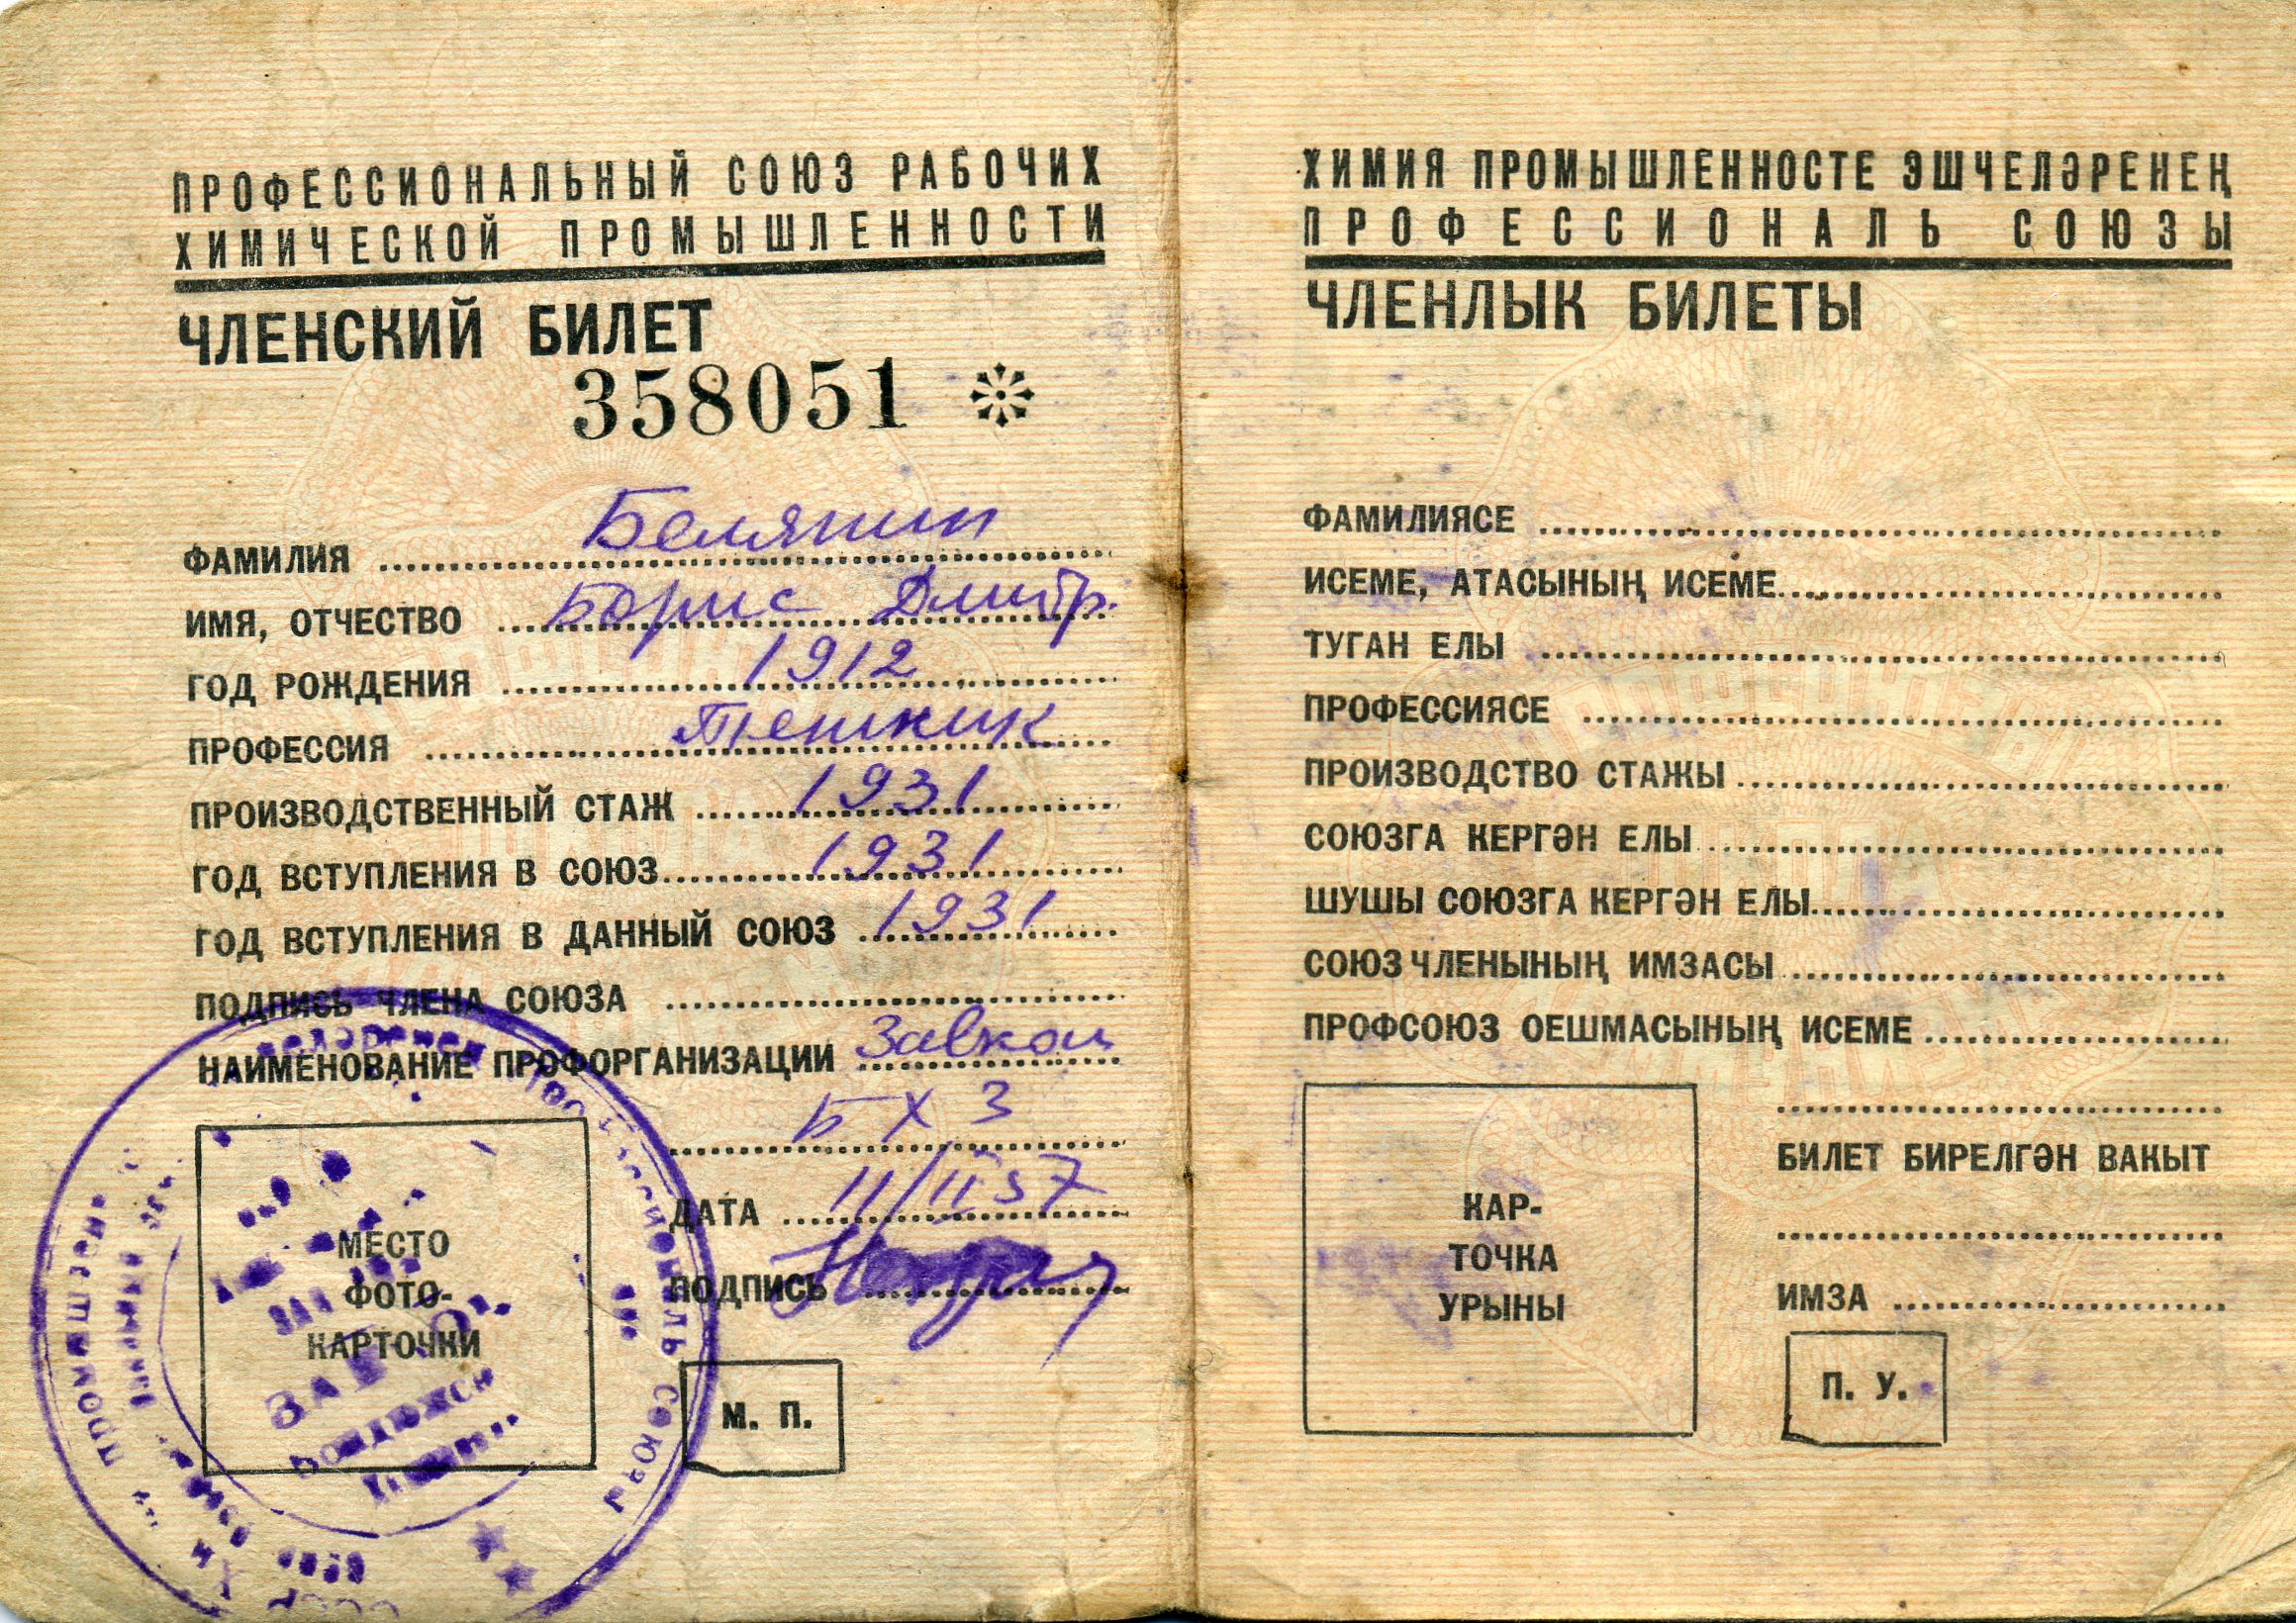 ПРОФЕССИОНАЛЬНЫЙ СОЮЗ РАБОЧИХ
ХИМИЧЕСКОЙ ПРОМЫШЛЕННОСТИ
ЧЛЕНСКИЙ БИЛЕТ
358051
ФАМИЛИЯ Белянин
ИМЯ, ОТЧЕСТВО Борис Дмитр.
ГОД РОЖДЕНИЯ 1912
ПРОФЕССИЯ Техник
ПРОИЗВОДСТВЕННЫЙ СТАЖ 1931
ГОД ВСТУПЛЕНИЯ В СОЮЗ 1931
ГОД ВСТУПЛЕНИЯ В ДАННЫЙ СОЮЗ 1931
ПОДПИСЬ ЧЛЕНА СОЮЗА
НАИМЕНОВАНИЕ ПРОФОРГАНИЗАЦИИ Завком
БХЗ
ДАТА 11/II 37
ПОДПИСЬ
МЕСТО
ФОТО-
КАРТОЧКИ
М. П.
ХИМИЯ ПРОМЫШЛЕННОСТЕ ЭШЧЕЛӘРЕНЕҢ
ПРОФЕССИОНАЛЬ СОЮЗЫ
ЧЛЕНЛЫК БИЛЕТЫ
ФАМИЛИЯСЕ
ИСЕМЕ, АТАСЫНЫҢ ИСЕМЕ
ТУГАН ЕЛЫ
ПРОФЕССИЯСЕ
ПРОИЗВОДСТВО СТАЖЫ
СОЮЗГА КЕРГӘН ЕЛЫ
ШУШЫ СОЮЗГА КЕРГӘН ЕЛЫ
СОЮЗ ЧЛЕНЫНЫҢ ИМЗАСЫ
ПРОФСОЮЗ ОЕШМАСЫНЫҢ ИСЕМЕ
БИЛЕТ БИРЕЛГӘН ВАКЫТ
КАР-
ТОЧКА
УРЫНЫ
ИМЗА
П. У.